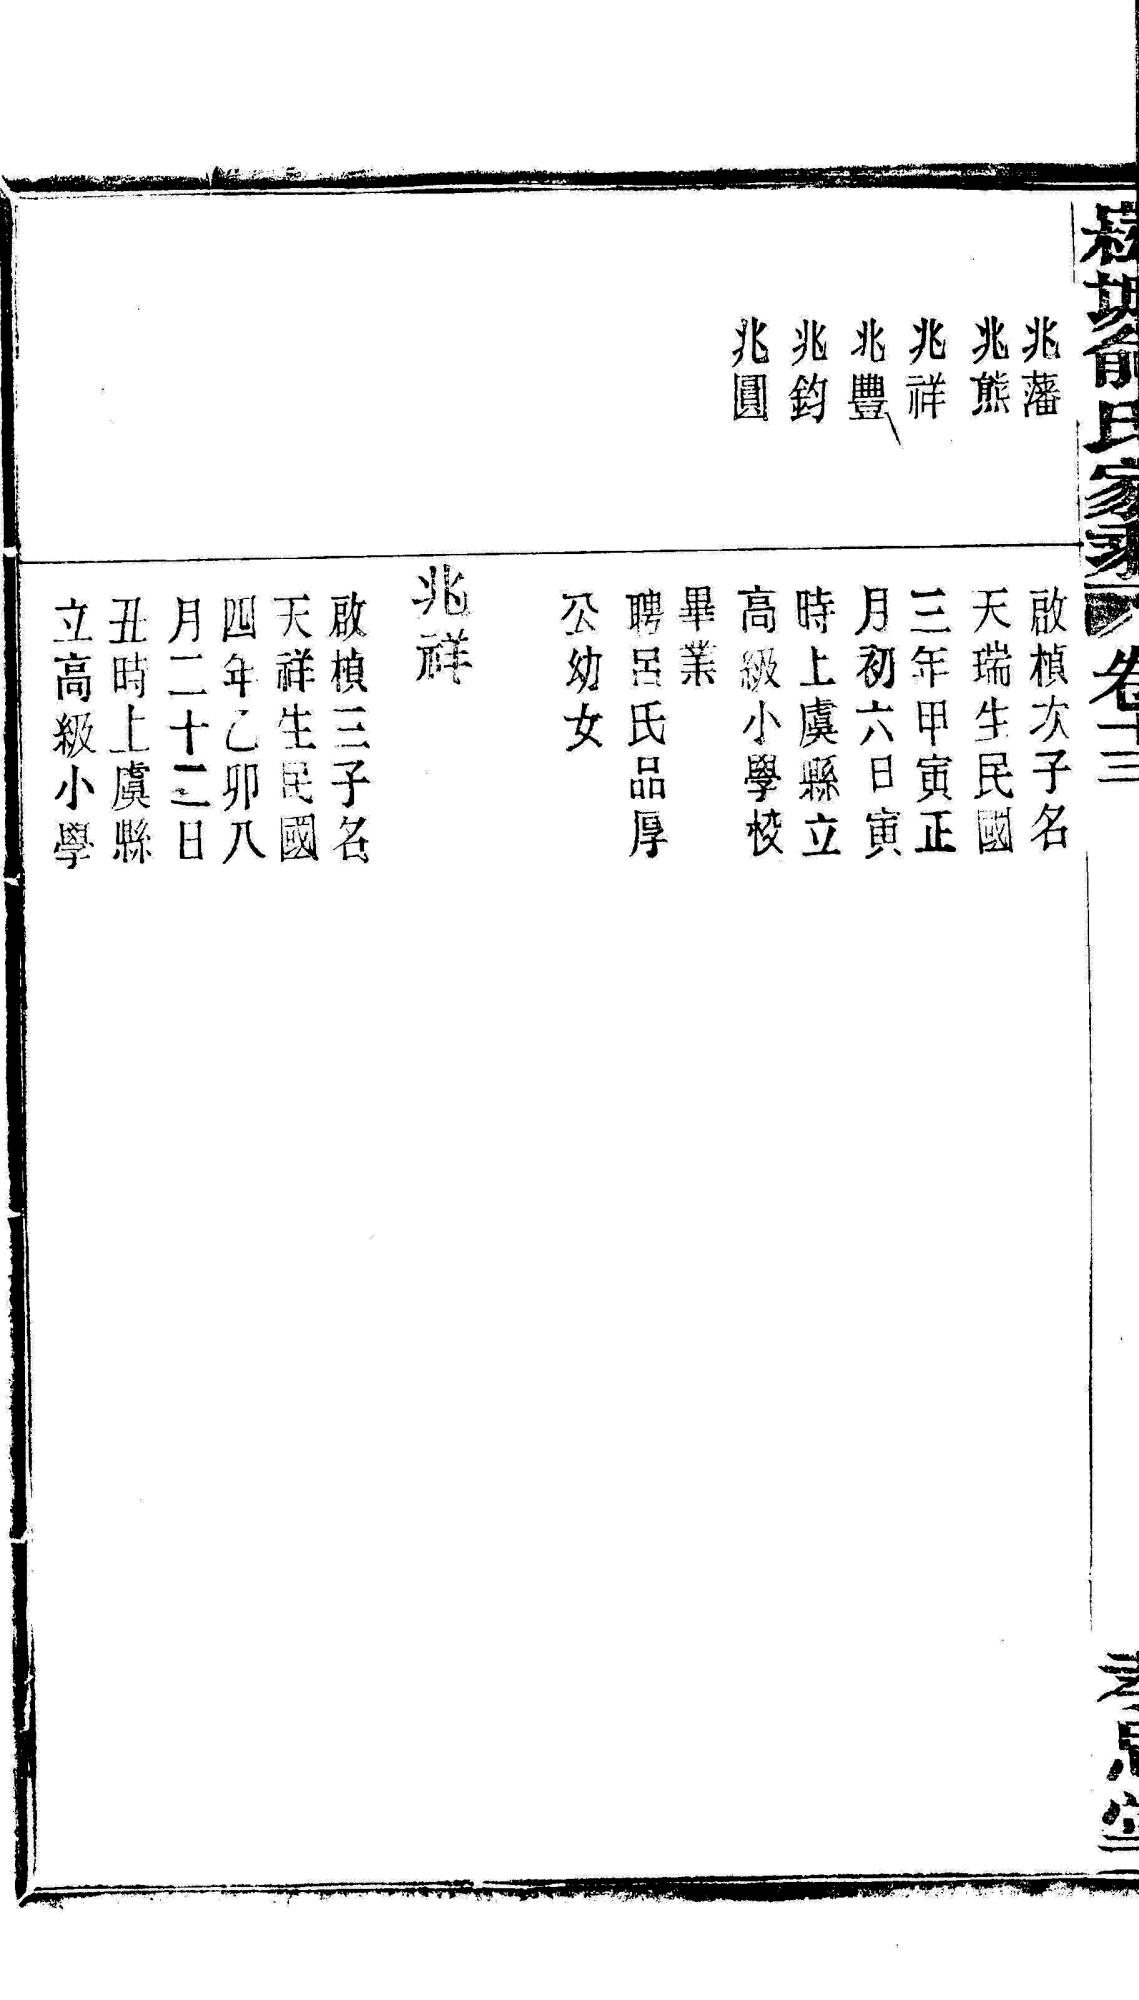 兆藩
兆熊
兆祥
兆豐
兆鈞
兆圓
啟楨次子名
天瑞生民國
三年甲寅正
月初六日寅
時上虞縣立
高級小學校
畢業
聘呂氏品厚
公幼女
兆祥
啟楨三子名
天祥生民國
四年乙卯八
月二十二日
丑時上虞縣
立高級小學
俞氏家乘
卷十三
孝思堂